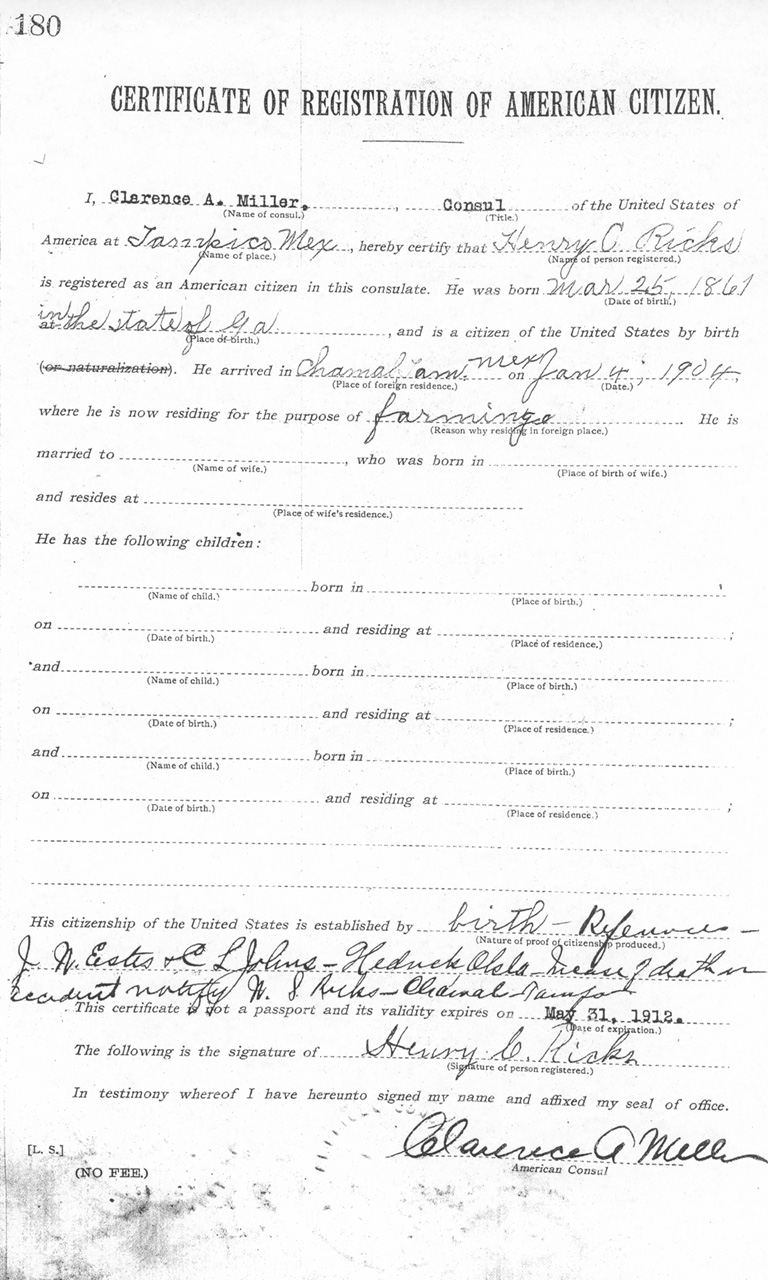 180
CERTIFICATE OF REGISTRATION OF AMERICAN CITIZEN.
I, Clarence A. Miller, Consul of the United States of
(Name of consul.) (Title.)
America at Tampico Mex, hereby certify that Henry C. Ricks
(Name of place.) (Name of person registered.)
is registered as an American citizen in this consulate. He was born Mar 25, 1861
(Date of birth.)
in
at the state of Ga, and is a citizen of the United States by birth
(Place of birth.)
(or naturalization). He arrived in Chamal Tam. Mex on Jan 4, 1904,
(Place of foreign residence.) (Date.)
where he is now residing for the purpose of farming. He is
(Reason why residing in foreign place.)
married to , who was born in
(Name of wife.) (Place of birth of wife.)
and resides at
(Place of wife's residence.)
He has the following children:
born in ,
(Name of child.) (Place of birth.)
on and residing at ;
(Date of birth.) (Place of residence.)
and born in
(Name of child.) (Place of birth.)
on and residing at ;
(Date of birth.) (Place of residence.)
and born in
(Name of child.) (Place of birth.)
on and residing at ;
(Date of birth.) (Place of residence.)
His citizenship of the United States is established by birth – References –
(Nature of proof of citizenship produced.)
J. W. Estes & C L Johns – Hedrick Okla – In case of death or
accident notify W. S. Ricks – Chamal – Tamps
This certificate is not a passport and its validity expires on May 31, 1912.
(Date of expiration.)
The following is the signature of Henry C. Ricks
(Signature of person registered.)
In testimony whereof I have hereunto signed my name and affixed my seal of office.
Clarence A Miller
[L. S.] American Consul
(NO FEE.)